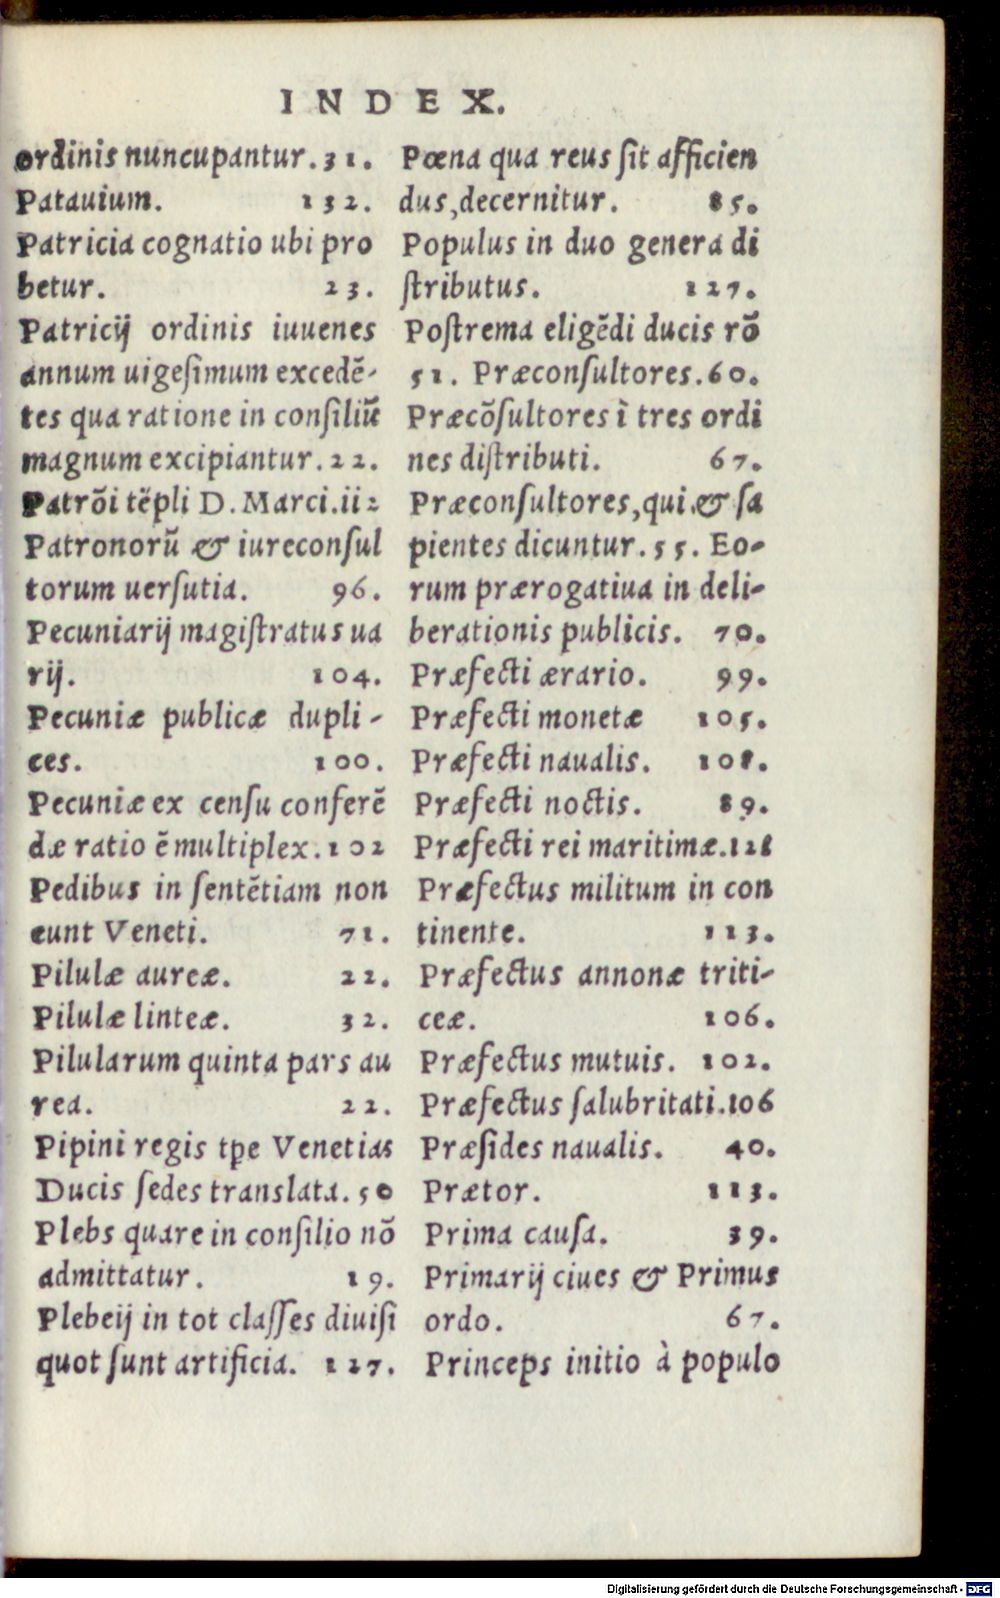 INDEX.
ordinis nuncupantur. 31.
Patauium. 132.
Patricia cognatio ubi pro
betur. 23.
Patricij ordinis iuuenes
annum uigeſimum excedē-
tes qua ratione in conſiliū
magnum excipiantur. 22.
Patrōi tēpli D. Marci. 112
Patronorū & iureconſul
torum uerſutia. 96.
Pecuniarij magiſtratus ua
rij. 104.
Pecuniæ publicæ dupli-
ces. 100.
Pecuniæ ex cenſu conferē
dæ ratio ē multiplex. 102
Pedibus in ſentētiam non
eunt Veneti. 71.
Pilulæ aureæ. 22.
Pilulæ linteæ. 32.
Pilularum quinta pars au
rea. 22.
Pipini regis tꝑe Venetias
Ducis ſedes translata. 50
Plebs quare in conſilio nō
admittatur. 19.
Plebeij in tot claſſes diuiſi
quot ſunt artificia. 127.
Pœna qua reus ſit afficien
dus, decernitur. 85.
Populus in duo genera di
ſtributus. 127.
Poſtrema eligēdi ducis rō
51. Præconſultores. 60.
Præcōſultores ī tres ordi
nes diſtributi. 67.
Præconſultores, qui & ſa
pientes dicuntur. 55. Eo-
rum prærogatiua in deli-
berationis publicis. 70.
Præfecti ærario. 99.
Præfecti monetæ 105.
Præfecti naualis. 108.
Præfecti noctis. 89.
Præfecti rei maritimæ. 128
Præfectus militum in con
tinente. 113.
Præfectus annonæ triti-
ceæ. 106.
Præfectus mutuis. 102.
Præfectus ſalubritati. 106
Præſides naualis. 40.
Prætor. 113.
Prima cauſa. 39.
Primarij ciues & Primus
ordo. 67.
Princeps initio à populo
Digitalisierung gefördert durch die Deutsche Forschungsgemeinschaft - DFG